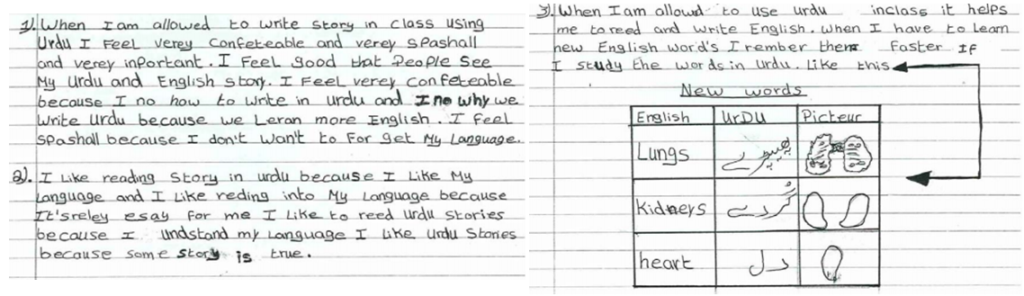 1). When I am allowed to write story in class using
Urdu I feel verey confeteable and verey spashall
and verey inportant. I feel good that people see
My Urdu and English story. I feel verey confeteable
because I no how to write in urdu and I no why we
write Urdu because we Leran more English. I feel
spashall because I don't won't to for get My Language.
2). I Like reading story in urdu because I Like My
Language and I Like reding into My Language because
It's reley esay for me I Like to reed Urdu stories
because I undstand my Language I like Urdu Stories
because some story is true.
3). When I am allowd to use urdu inclass it helps
me to reed and write English. When I have to learn
new English word's I rember them faster If
I study the words in urdu. Like this
New words
English Urdu Picteur
Lungs پھیپڑے
Kidneys گردے
heart دل